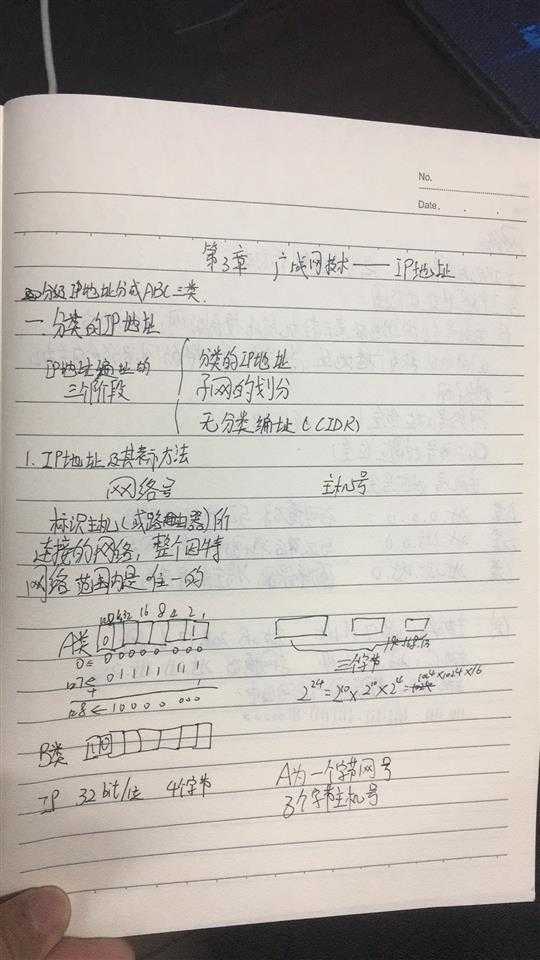 No.
Date.
第3章 广域网技术——IP地址
分级IP地址分成ABC三类.
一.分类的IP地址
IP地址编址的三个阶段
分类的IP地址
子网的划分
无分类编址(CIDR)
1. IP地址及其表示方法
网络号 主机号
标识主机(或路由器)所
连接的网络,整个因特
网络范围内是唯一的
A类 0 1
128 64 32 16 8 4 2 1
0 ← 0 0 0 0 0 0 0 0
127 ← 0 1 1 1 1 1 1 1
+ 1
128 ← 1 0 0 0 0 0 0 0
三个字节
2^24 = 2^10 × 2^10 × 2^4 = 1024×1024×16
B类 1 0
IP 32 bit/位 4个字节
A为一个字节网号
3个字节主机号